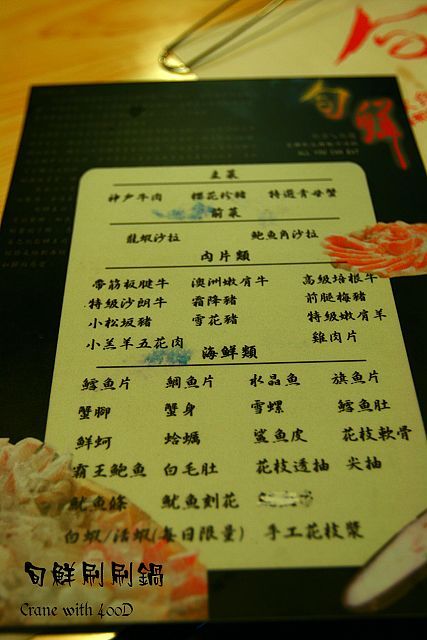 旬鮮
ALL YOU CAN EAT
主菜
神戶牛肉 櫻花珍豬 特選青母蟹
前菜
龍蝦沙拉 鮑魚角沙拉
肉片類
帶筋板腱牛 澳洲嫩肩牛 高級培根牛
特級沙朗牛 霜降豬 前腿梅豬
小松坂豬 雪花豬 特級嫩肩羊
小羔羊五花肉 雞肉片
海鮮類
鱈魚片 鯛魚片 水晶魚 旗魚片
蟹腳 蟹身 雪螺 鱈魚肚
鮮蚵 蛤蠣 鯊魚皮 花枝軟骨
霸王鮑魚 白毛肚 花枝透抽 尖抽
魷魚條 魷魚刻花
白蝦/活蝦(每日限量) 手工花枝漿
旬鮮刷刷鍋
Crane with 400D